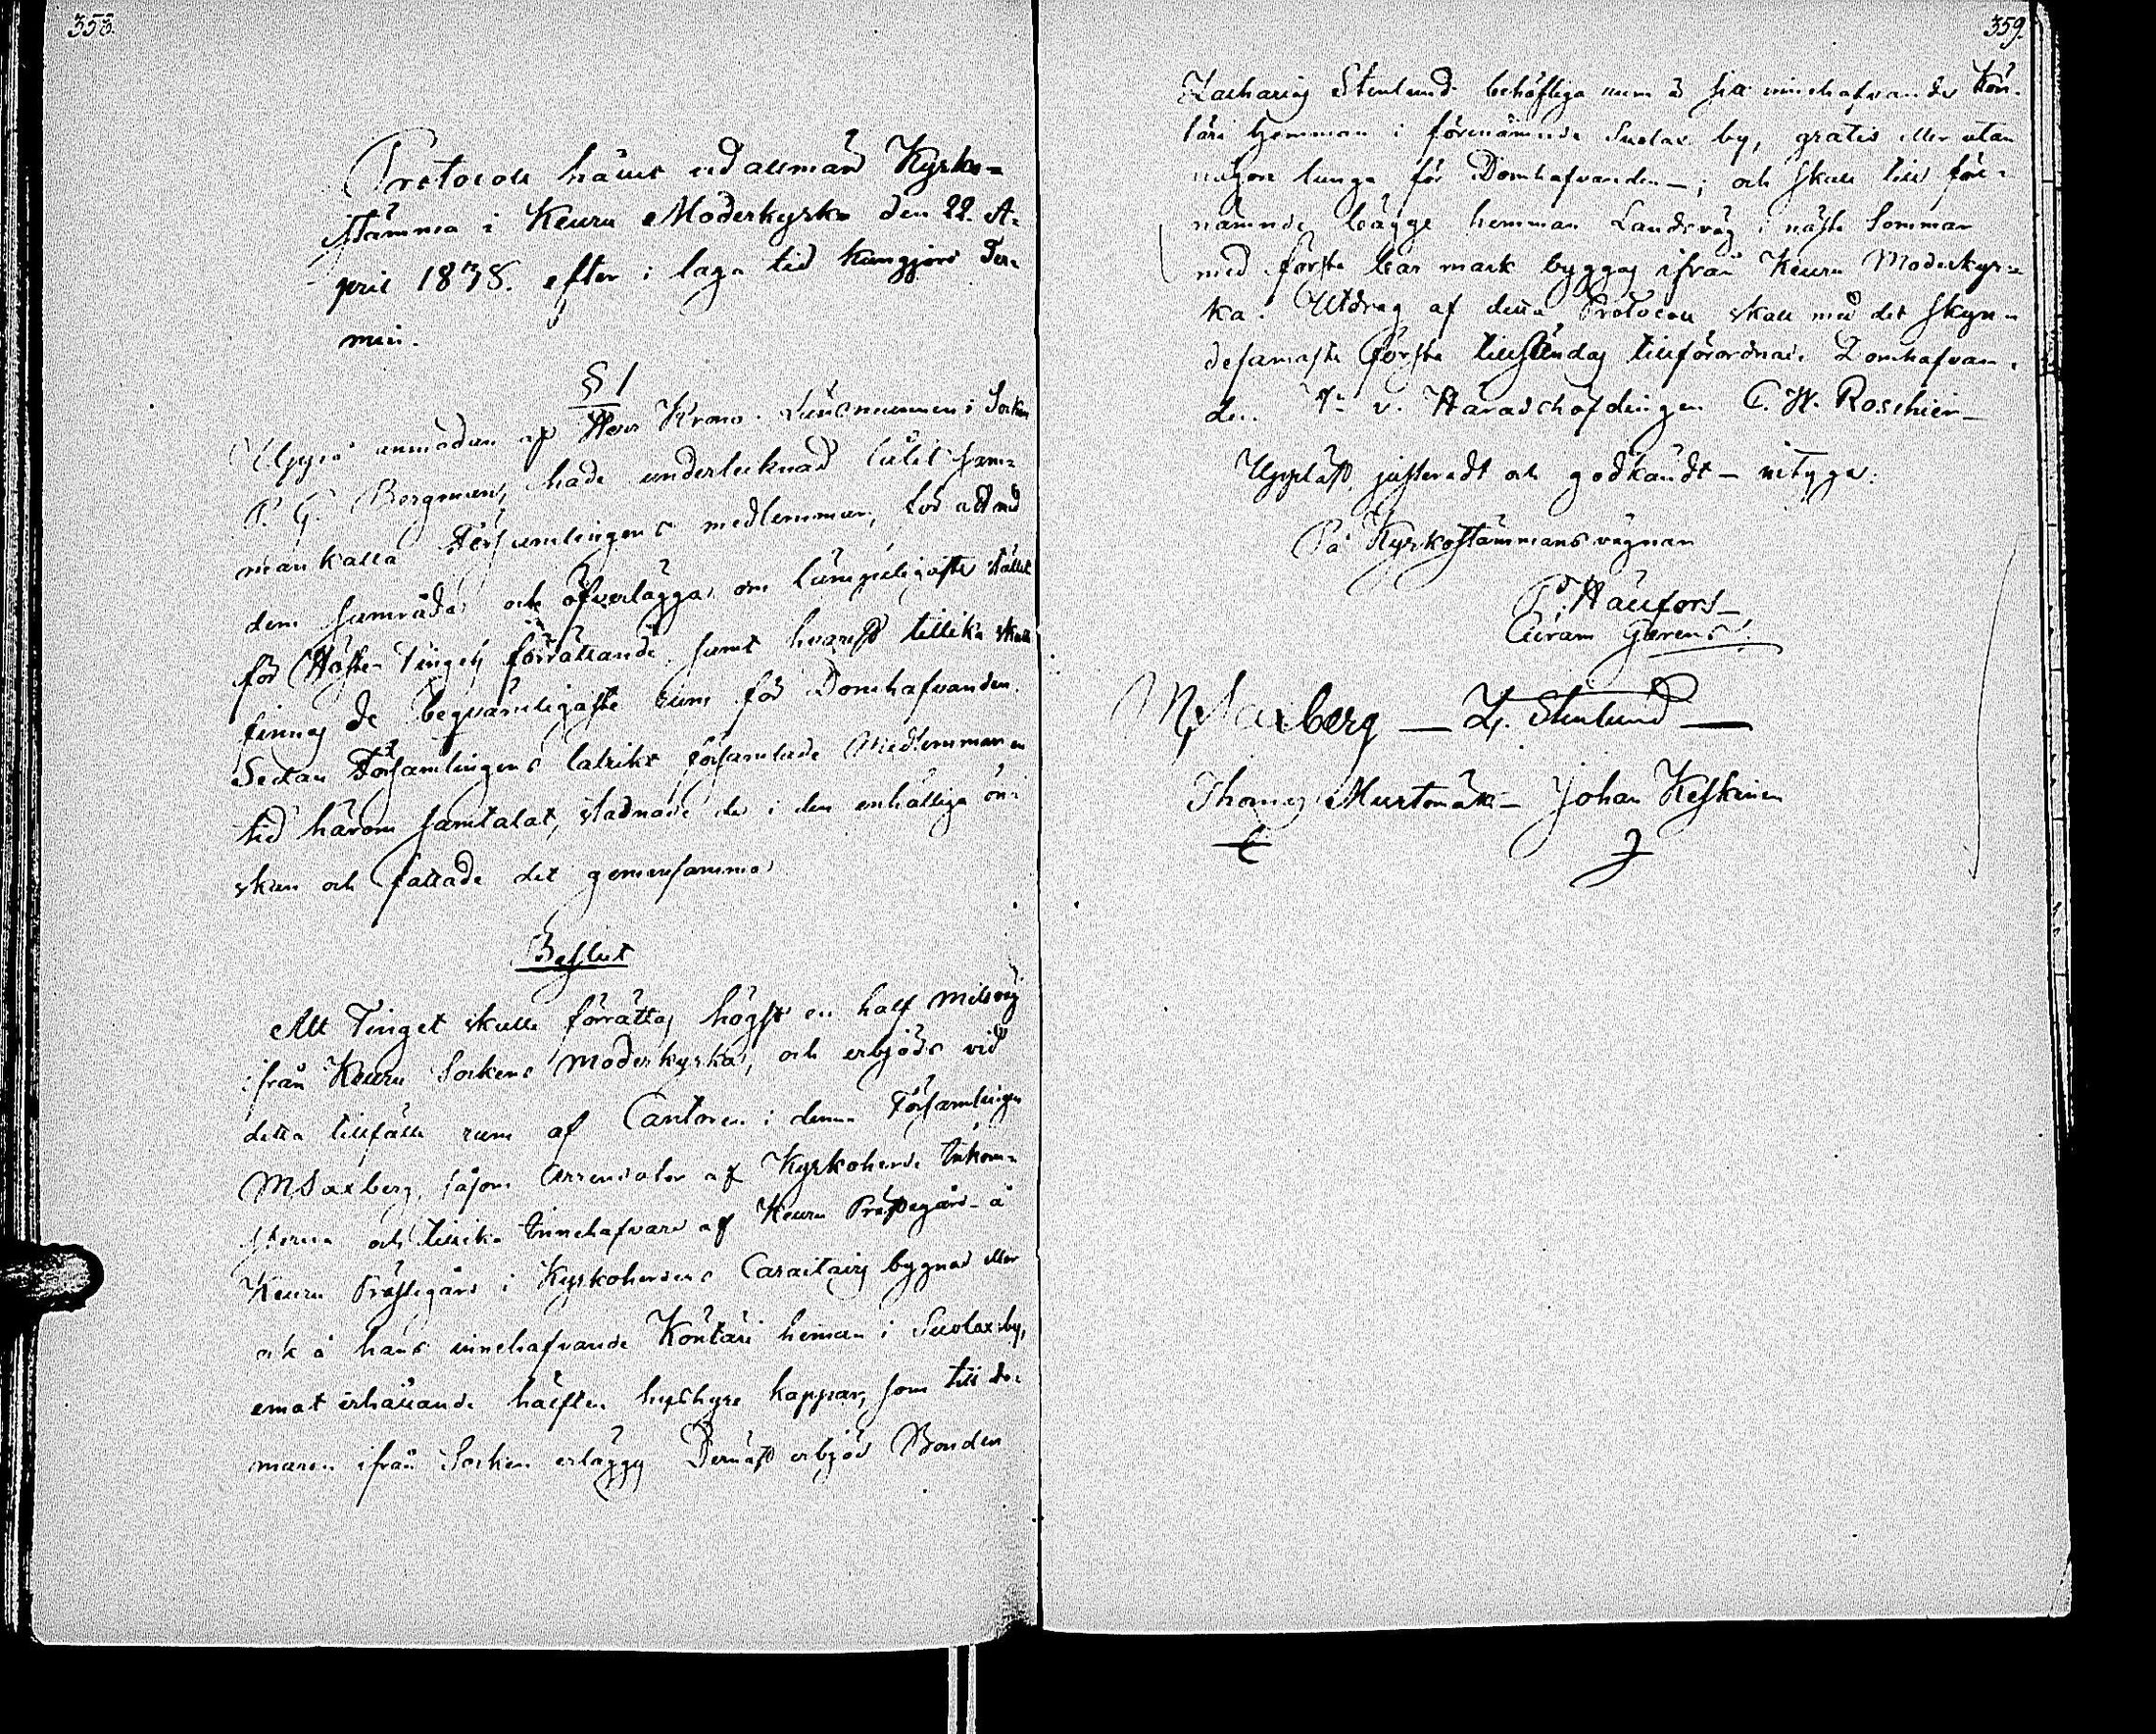 358.
Protocoll hållit vid allmän Kyrko-
stämma i Keuru Moderkyrka den 22. A-
pril 1838. efter i laga tid kungjord Ter-
min.
§ 1
Uppå anmodan af Herr Krono-Länsmannen i Socken
P. G. Bergman, hade undertecknad låtit sam-
mankalla Församlingens medlemmar, för att med
dem samråda och öfverlägga om lämpeligaste stället
för Höste-Tingets förrättande, samt hvarest tillika skulle
finnas de beqvämligaste rum för Domhafvanden.
Sedan Församlingens talrikt församlade Medlemmar en
tid härom samtalat, stadnade de i den enhälliga ön-
skan och fattade det gemensamma
Beslut
Att Tinget skulle förrättas högst en half milsväg
ifrån Keuru Sockens Moderkyrka, och erbjöds vid
detta tillfälle rum af Cantoren i denna Församlingen
M Saxberg, såsom Arrendator af Kyrkoherde Inkom-
sterna och tillika Innehafvare af Keuru Prästegård å
Keuru Prästegård i Kyrkoherdens byggnad eller
ock å hans innehafvande Köntäri heman i Suolax by,
emot erhållande hälften hushyre kappar, som till do-
maren ifrån Socken erlägges Dernäst erbjöd Bonden
359.
Zacharias Stenlund behöfliga rum å sitt innehafvande Kön-
täri hemman i förenämnde Suolax by, gratis eller utan
någon lunga för Domhafvanden—; och skall till före-
nämnde bägge hemman Landsväg i nästa Sommar
med första bar mark byggas ifrån Keuru Moderkyr-
ka. Utdrag af detta Protocoll skall med det skyn-
desamaste första tillställas tillförordnade Domhafvan-
den. v. Häradshöfdingen C. W. Roschier—
Uppläst, justeradt och godkändt — intyga:
På Kyrkostämmans vägnar
P. Hällfors—
Adram Gerens
M Saxberg — Z. Stenlund —
Thomas Murtomäki — Johan Keskinen